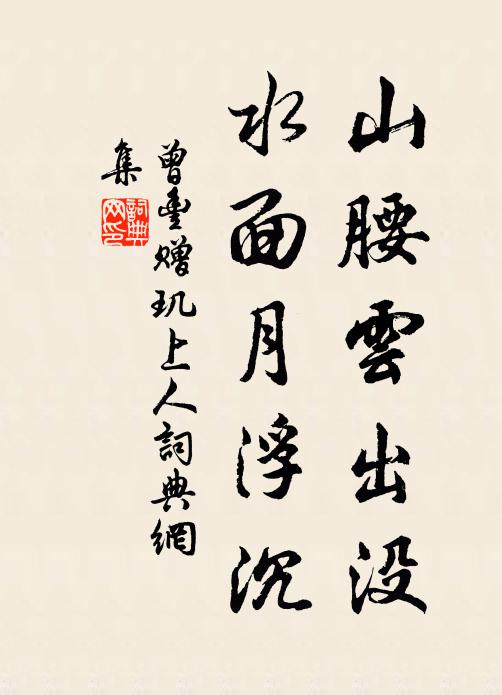 山腰雲出没
水面月浮沉
曾豊贈玑上人詞典網
集
詞典網印